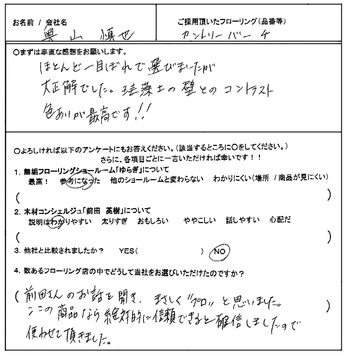 お名前 / 会社名
奥山 慎也
ご採用頂いたフローリング(品番等)
カントリーバーチ
○まずは率直な感想をお願いします。
ほとんど一目ぼれで選びましたが
大正解でした。珪藻土の壁とのコントラスト
色あいが最高です!!
○よろしければ以下のアンケートにもお答えください。(該当するところに○をしてください。)
さらに、各項目ごとに一言いただければ幸いです!!
1. 無垢フローリングショールーム「ゆらぎ」について
最高! 参考になった 他のショールームと変わらない わかりにくい(場所 / 商品が見にくい)
( )
2. 木材コンシェルジュ「前田 英樹」について
説明はわかりやすい 太りすぎ おもしろい ややこしい 話しやすい 心配だ
( )
3. 他社と比較されましたか? YES( ) NO
4. 数あるフローリング店の中でどうして当社をお選びいただけたのですか?
(前田さんのお話を聞き、まさしく"プロ"と思いました。
ここの商品なら絶対的に信頼できると確信しましたので
使わせて頂きました。 )